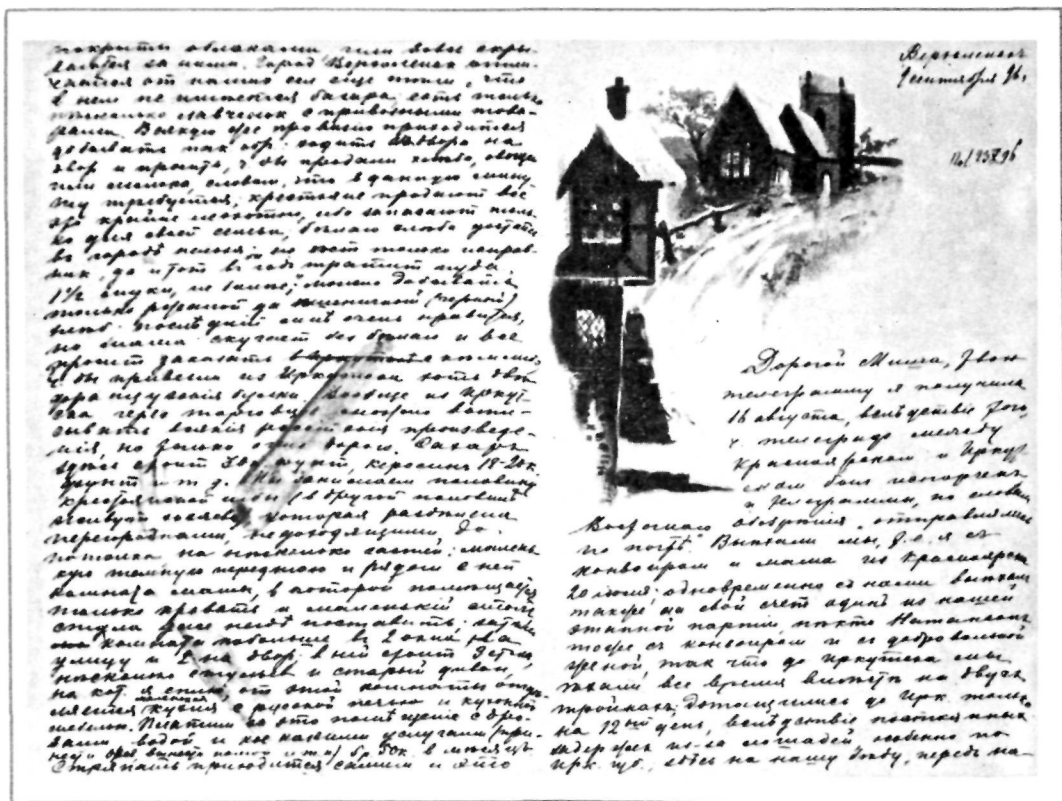 покрыты облаками или вовсе скры-
ваются за ними. Городъ Верхоленскъ отли-
чается от наших сел еще тем, что
в нем не имеется базара, есть только
несколько лавченок с привозными това-
рами. Всякую же провизию приходится
добывать так обр: ходить со двора на
двор и просить, ч. бы продали хлеба, овощи
или молока, словом, что в данную мину
ту требуется, крестьяне продают всё
это крайне неохотно, ибо запасают толь
ко для своей семьи, белаго хлеба достать
въ городѣ нельзя, его ест только исправ-
ник, да и тот в год тратит муки
1½, можно добывать
только ржаной да пшеничный (черный)
хлеб. последний мне очень нравится,
но мама скучает без булки и все
просит заказать
ч. бы привезли из Иркутска хоть две
французския булки. Вообще из Иркут
ска через торговцев можно выпи-
сывать всякия произведе-
ния, но только очень дорого. Сахаръ
здесь стоит фунт, керосинъ 18-20 к.
фунт и т. д. Мы занимаем половину
крестьянской избы (в другой половинѣ
живут хозяева), которая разделена
перегородками, недоходящими до
потолка на несколько частей: малень
кую темную переднюю и рядом с ней
комната мамы, в которой помещается
только кровать и маленький столик
стула уже негдѣ поставить; затѣм
комната побольше в 2 окна на
улицу и 2 на двор: в ней стоит
несколько стульев и старый диван,
на кот. я сплю, от этой комнаты отде
ляется кухня с русской печью и кухонным
столом. Платим за это помещение с дро-
вами водой и кое какими услугами
6 р. 50 к. в месяцъ
Стряпать приходится самим и это
Верхоленскъ
9 сентября 96.
Дорогой Миша, Твою
телеграмму я получила
16 августа, вследствие того
ч. телеграф между
Красноярском и Иркут
ском был испорченъ
и телеграммы, по словам
Восточнаго обозрения, отправлялись
по почте. Выехали мы, т. е. я съ
конвоиром и мама из Красноярска
20 июля; одновременно с нами выехал
также на свой счет один из нашей
этапной партии некто
тоже съ конвоиром и съ добровольной
женой, так что до Иркутска мы
ехали все время вместе на двух
тройках. Дотащились до Ирк. только
на 12ый день, вследствие постоянных
задержек из-за лошадей особенно по
ирк. губ., здесь на нашу беду, передъ на-